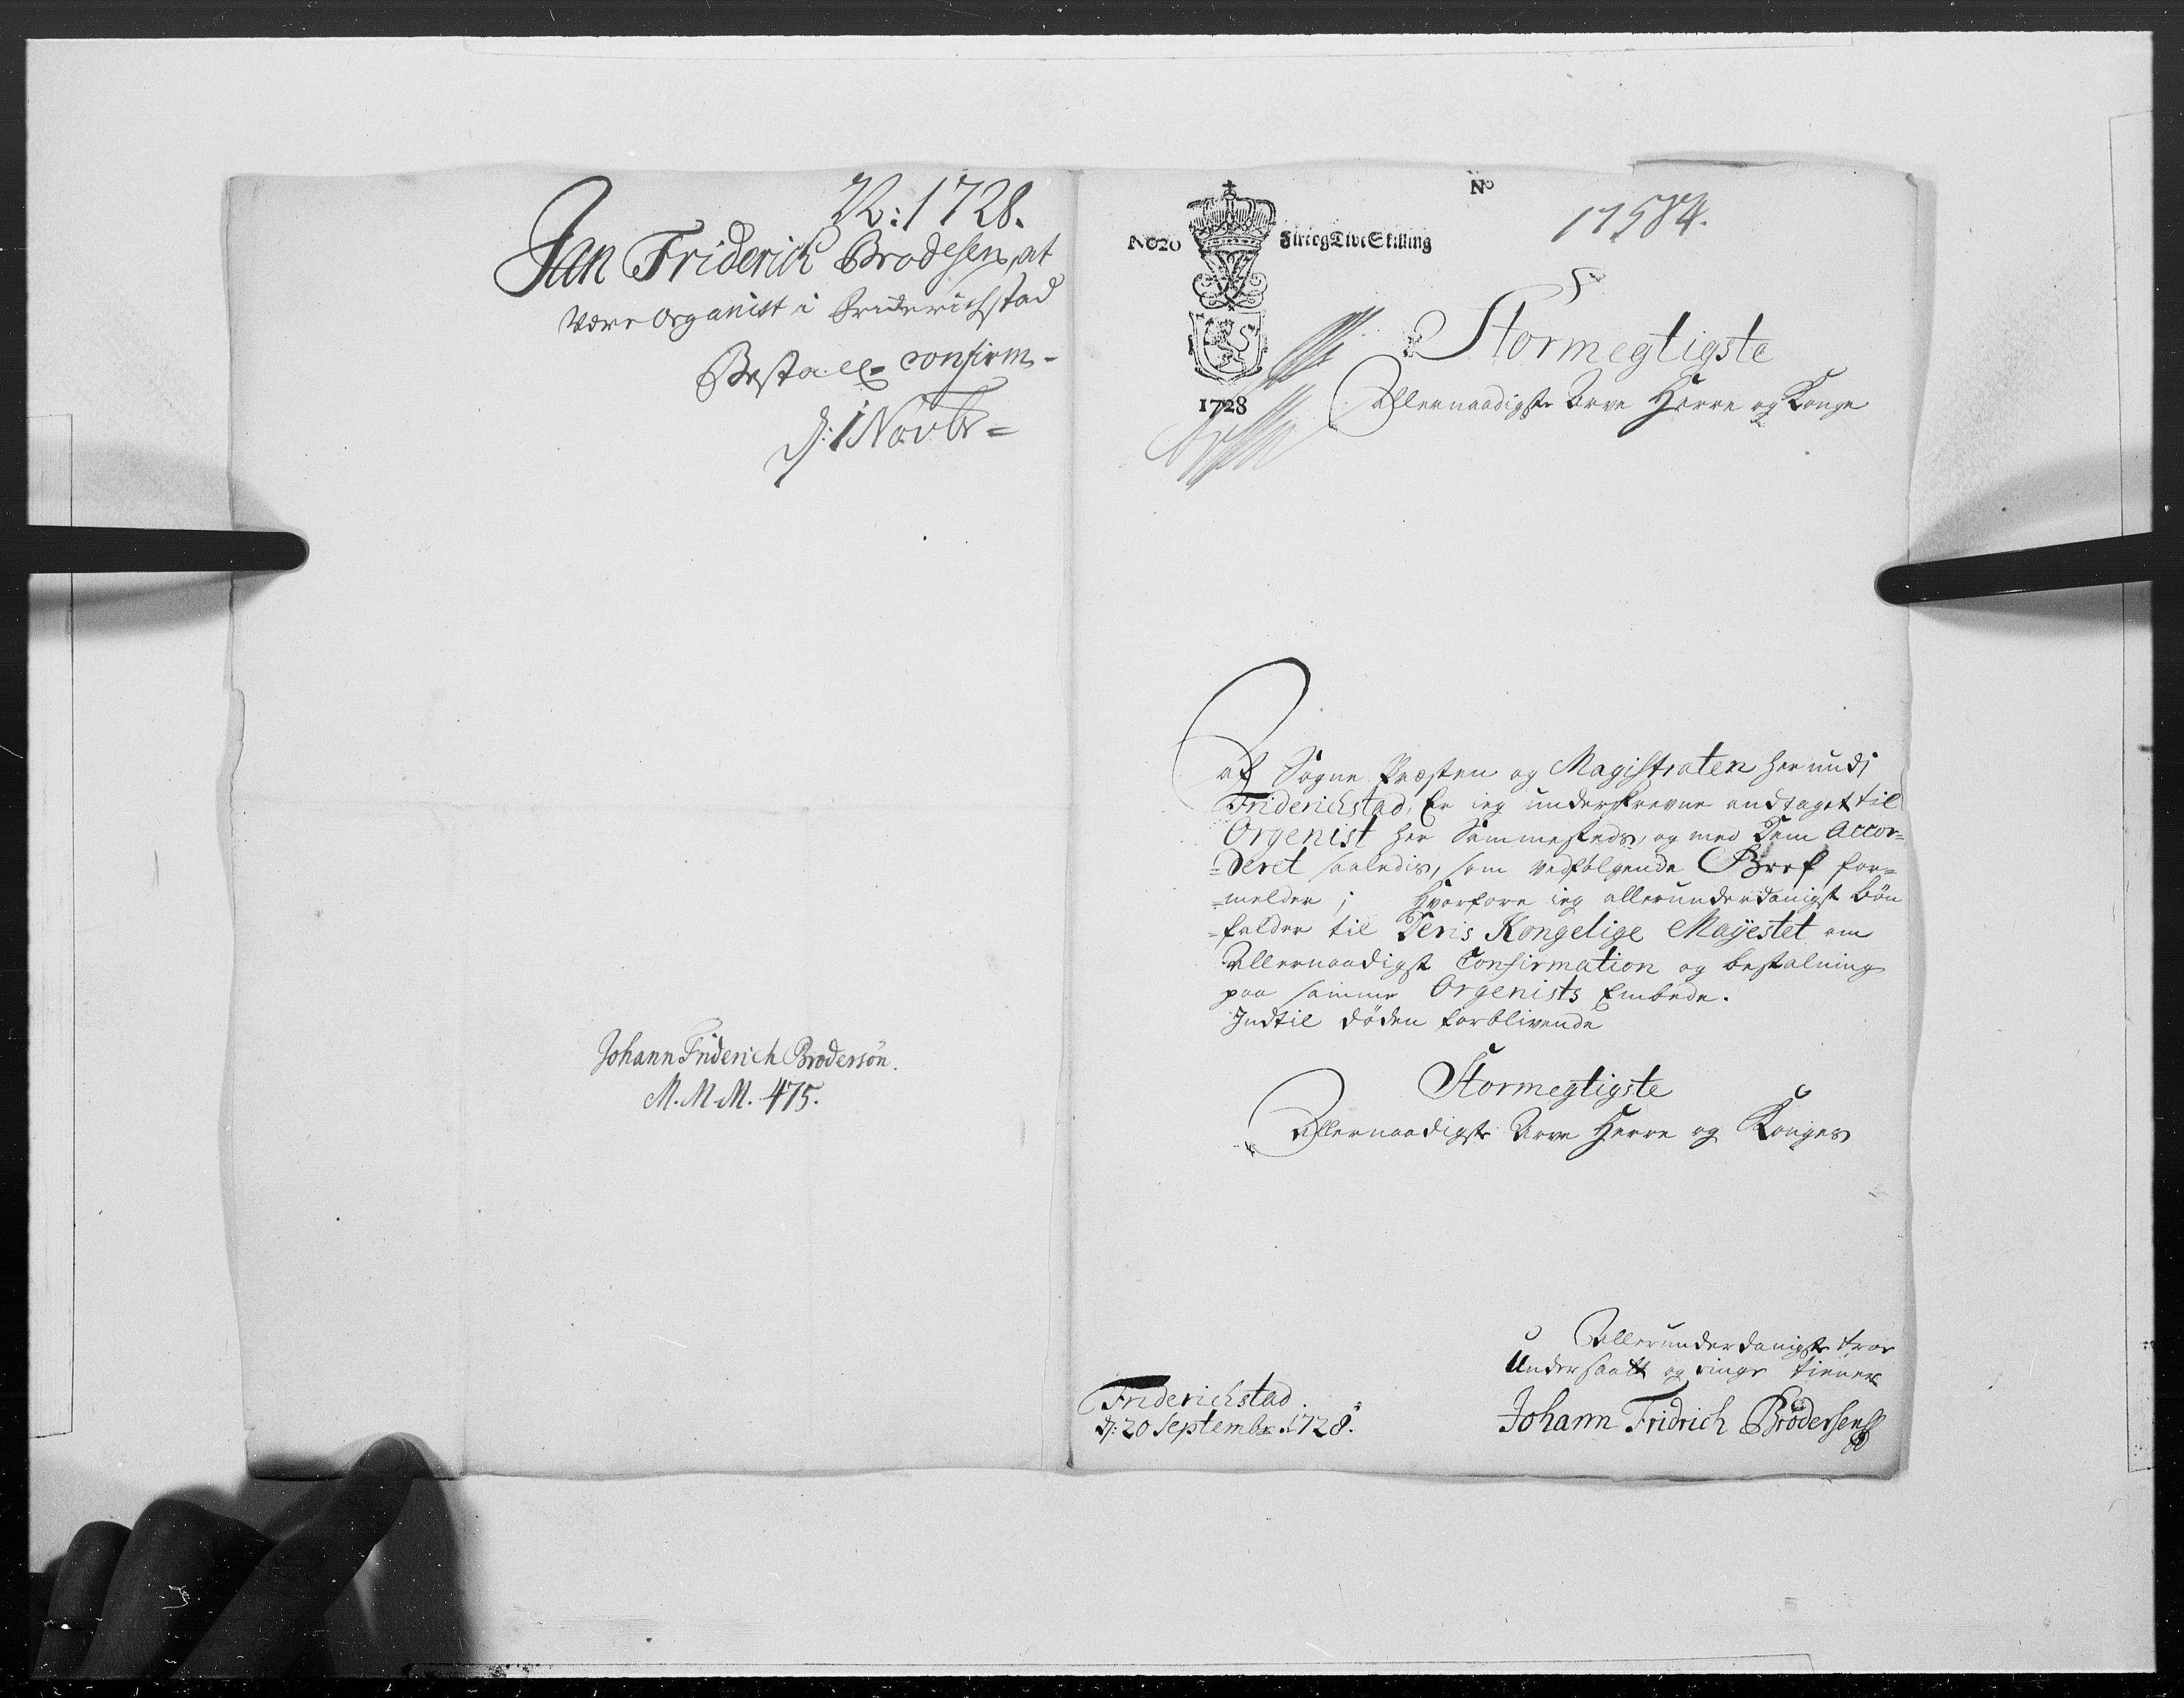 N: 1728.
Jan Friderich Brodesen, at
være organist i Friderichstad
Bestall= confirm-
d: 1 Novbr=
Johann Friderich Brodersön.
M. M. M. 475.
No
17584.
No20 Fire og Tive Skilling
1728
Stormegtigste
Allernaadigste Arve Herre og Konge
Af Sogne Præsten og Magistraten her udi
Friderichstad, Er ieg underskrevne andtaget til
Orgenist her Sammesteds, og med Dem Accor=
=deret saaledis, som vedfølgende Bref for=
=melder; Hvorfore ieg allerunderdanigst bön
=falder til Deris Kongelige Mayestet om
Allernaadigst Confirmation og bestalning
paa samme Orgenists Embede.
Indtil döden forblivende
Stormegtigste
Allernaadigste Arve Herre og Konges
Allerunderdanigste troe
Undersaatt og ringe tiener
Friderichstad
d: 20 Septembr: 1728.
Johann Fridrich Brödersen